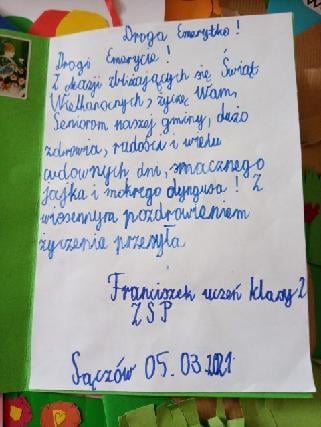 Droga Emerytko!
Drogi Emerycie!
Z okazji zbliżających się Świąt
Wielkanocnych, życzę Wam,
Seniorom naszej gminy, dużo
zdrowia, radości i wielu
cudownych dni, smacznego
jajka i mokrego dyngusa! Z
wiosennym pozdrowieniem
życzenia przesyła
Franciszek uczeń klasy 2
ZSP
Sączów 05.03.2021